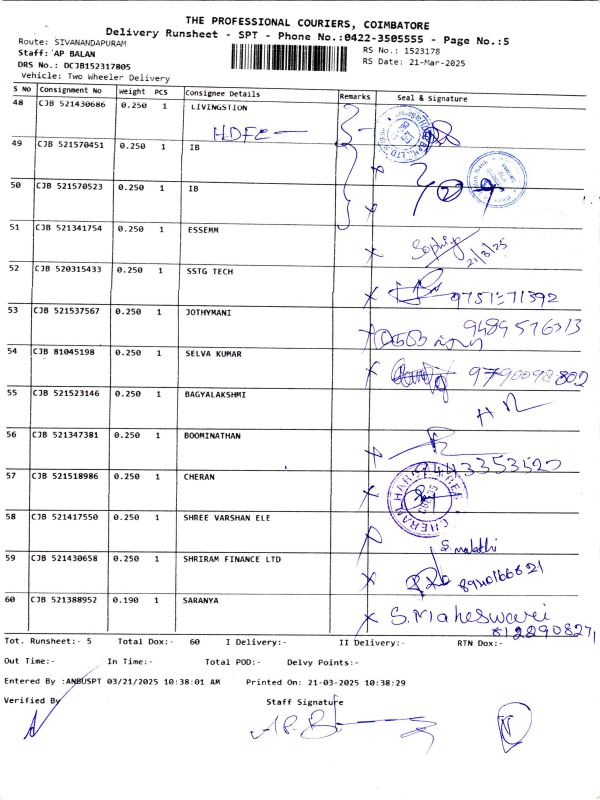 THE PROFESSIONAL COURIERS, COIMBATORE
Delivery Runsheet - SPT - Phone No.:0422-3505555 - Page No.:5
Route: SIVANANDAPURAM
Staff: AP BALAN
DRS No.: DCJB152317805
Vehicle: Two Wheeler Delivery
RS No.: 1523178
RS Date: 21-Mar-2025
S No Consignment No Weight PCS Consignee Details Remarks Seal & Signature
48 CJB 521430686 0.250 1 LIVINGSTION
HDFC
49 CJB 521570451 0.250 1 IB
50 CJB 521570523 0.250 1 IB
51 CJB 521341754 0.250 1 ESSEMM
21/3/25
52 CJB 520315433 0.250 1 SSTG TECH
9751171392
53 CJB 521537567 0.250 1 JOTHYMANI
9489576313
54 CJB 81045198 0.250 1 SELVA KUMAR
9790098802
55 CJB 521523146 0.250 1 BAGYALAKSHMI
56 CJB 521347381 0.250 1 BOOMINATHAN
57 CJB 521518986 0.250 1 CHERAN
CHERAN
58 CJB 521417550 0.250 1 SHREE VARSHAN ELE
S. malathi
59 CJB 521430658 0.250 1 SHRIRAM FINANCE LTD
60 CJB 521388952 0.190 1 SARANYA
S. Maheswari
8122908271
Tot. Runsheet:- 5 Total Dox:- 60 I Delivery:- II Delivery:- RTN Dox:-
Out Time:- In Time:- Total POD:- Delvy Points:-
Entered By :ANBUSPT 03/21/2025 10:38:01 AM Printed On: 21-03-2025 10:38:29
Verified By Staff Signature